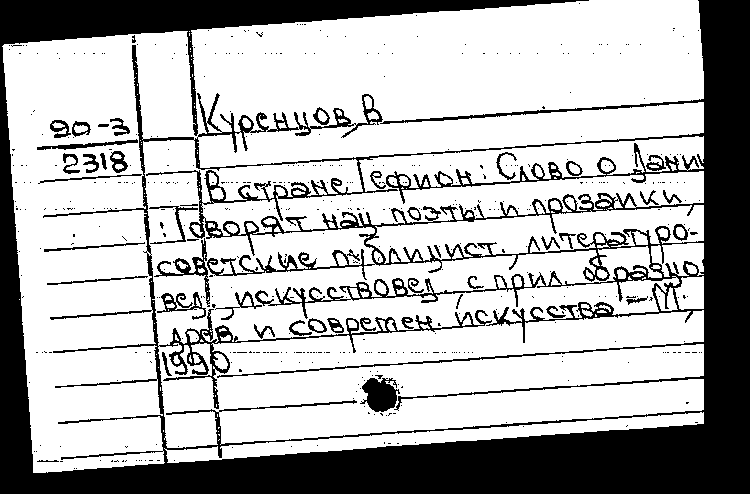 90-3
2318
Куренцов, В
В стране Гефион: Слово о Дании
: Говорят нац. поэты и прозаики,
советские публицист., литературо-
вед., искусствовед. с прил. образцо
древ. и современ. искусства - М.,
1990.